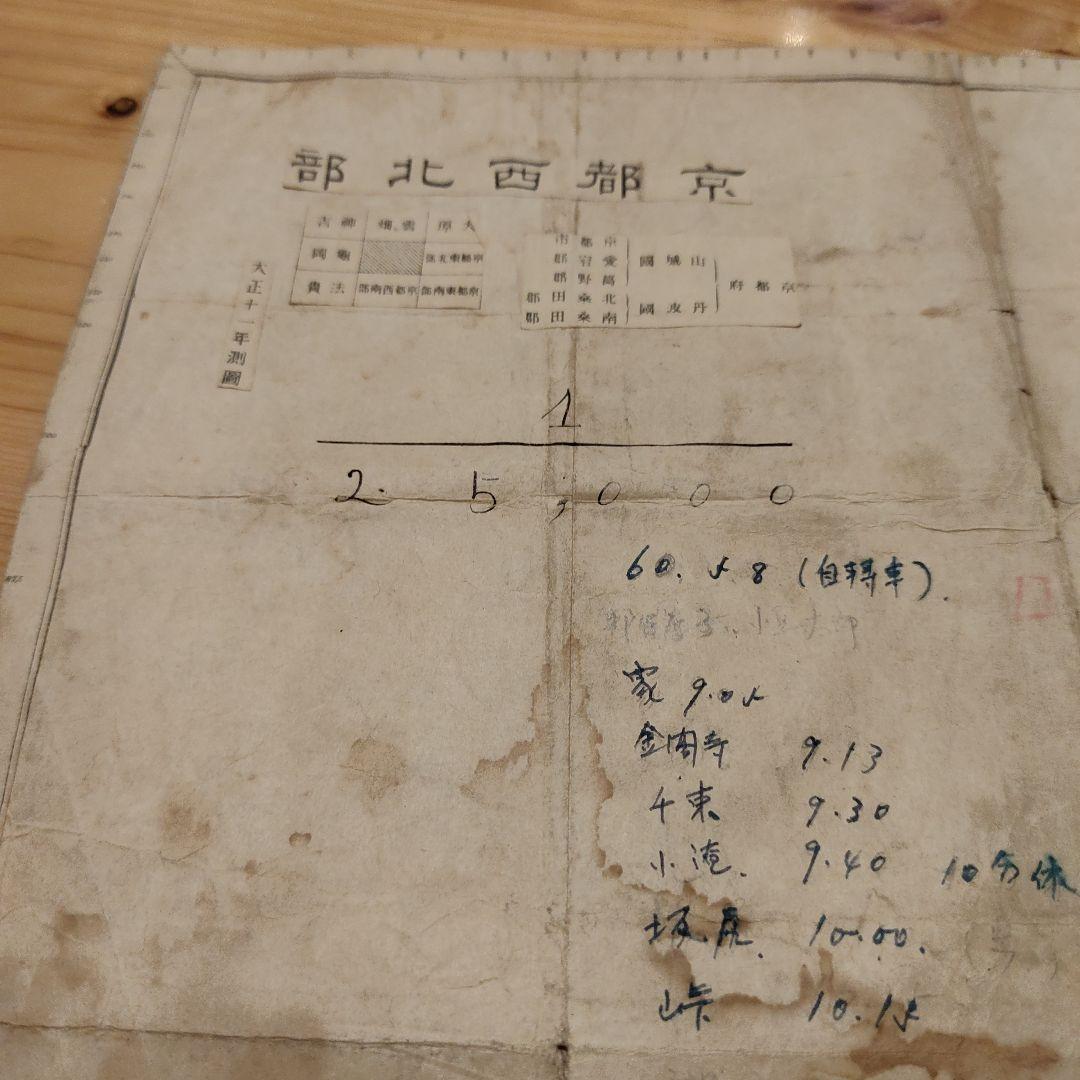 部北西都京
吉神 畑雲 原大
岡龜 部北東都京
貴法 部南西都京 部南東都京
大正十 年測圖
市都京
郡宕愛
郡野葛
郡田桑北
郡田桑南
國城山
國波丹
府都京
1
25,000
60. 5 8 (自轉車).
家 9.05
金閣寺 9.13
千束 9.30
小滝. 9.40 10分休
坂尻. 10.00.
峠 10.15
12